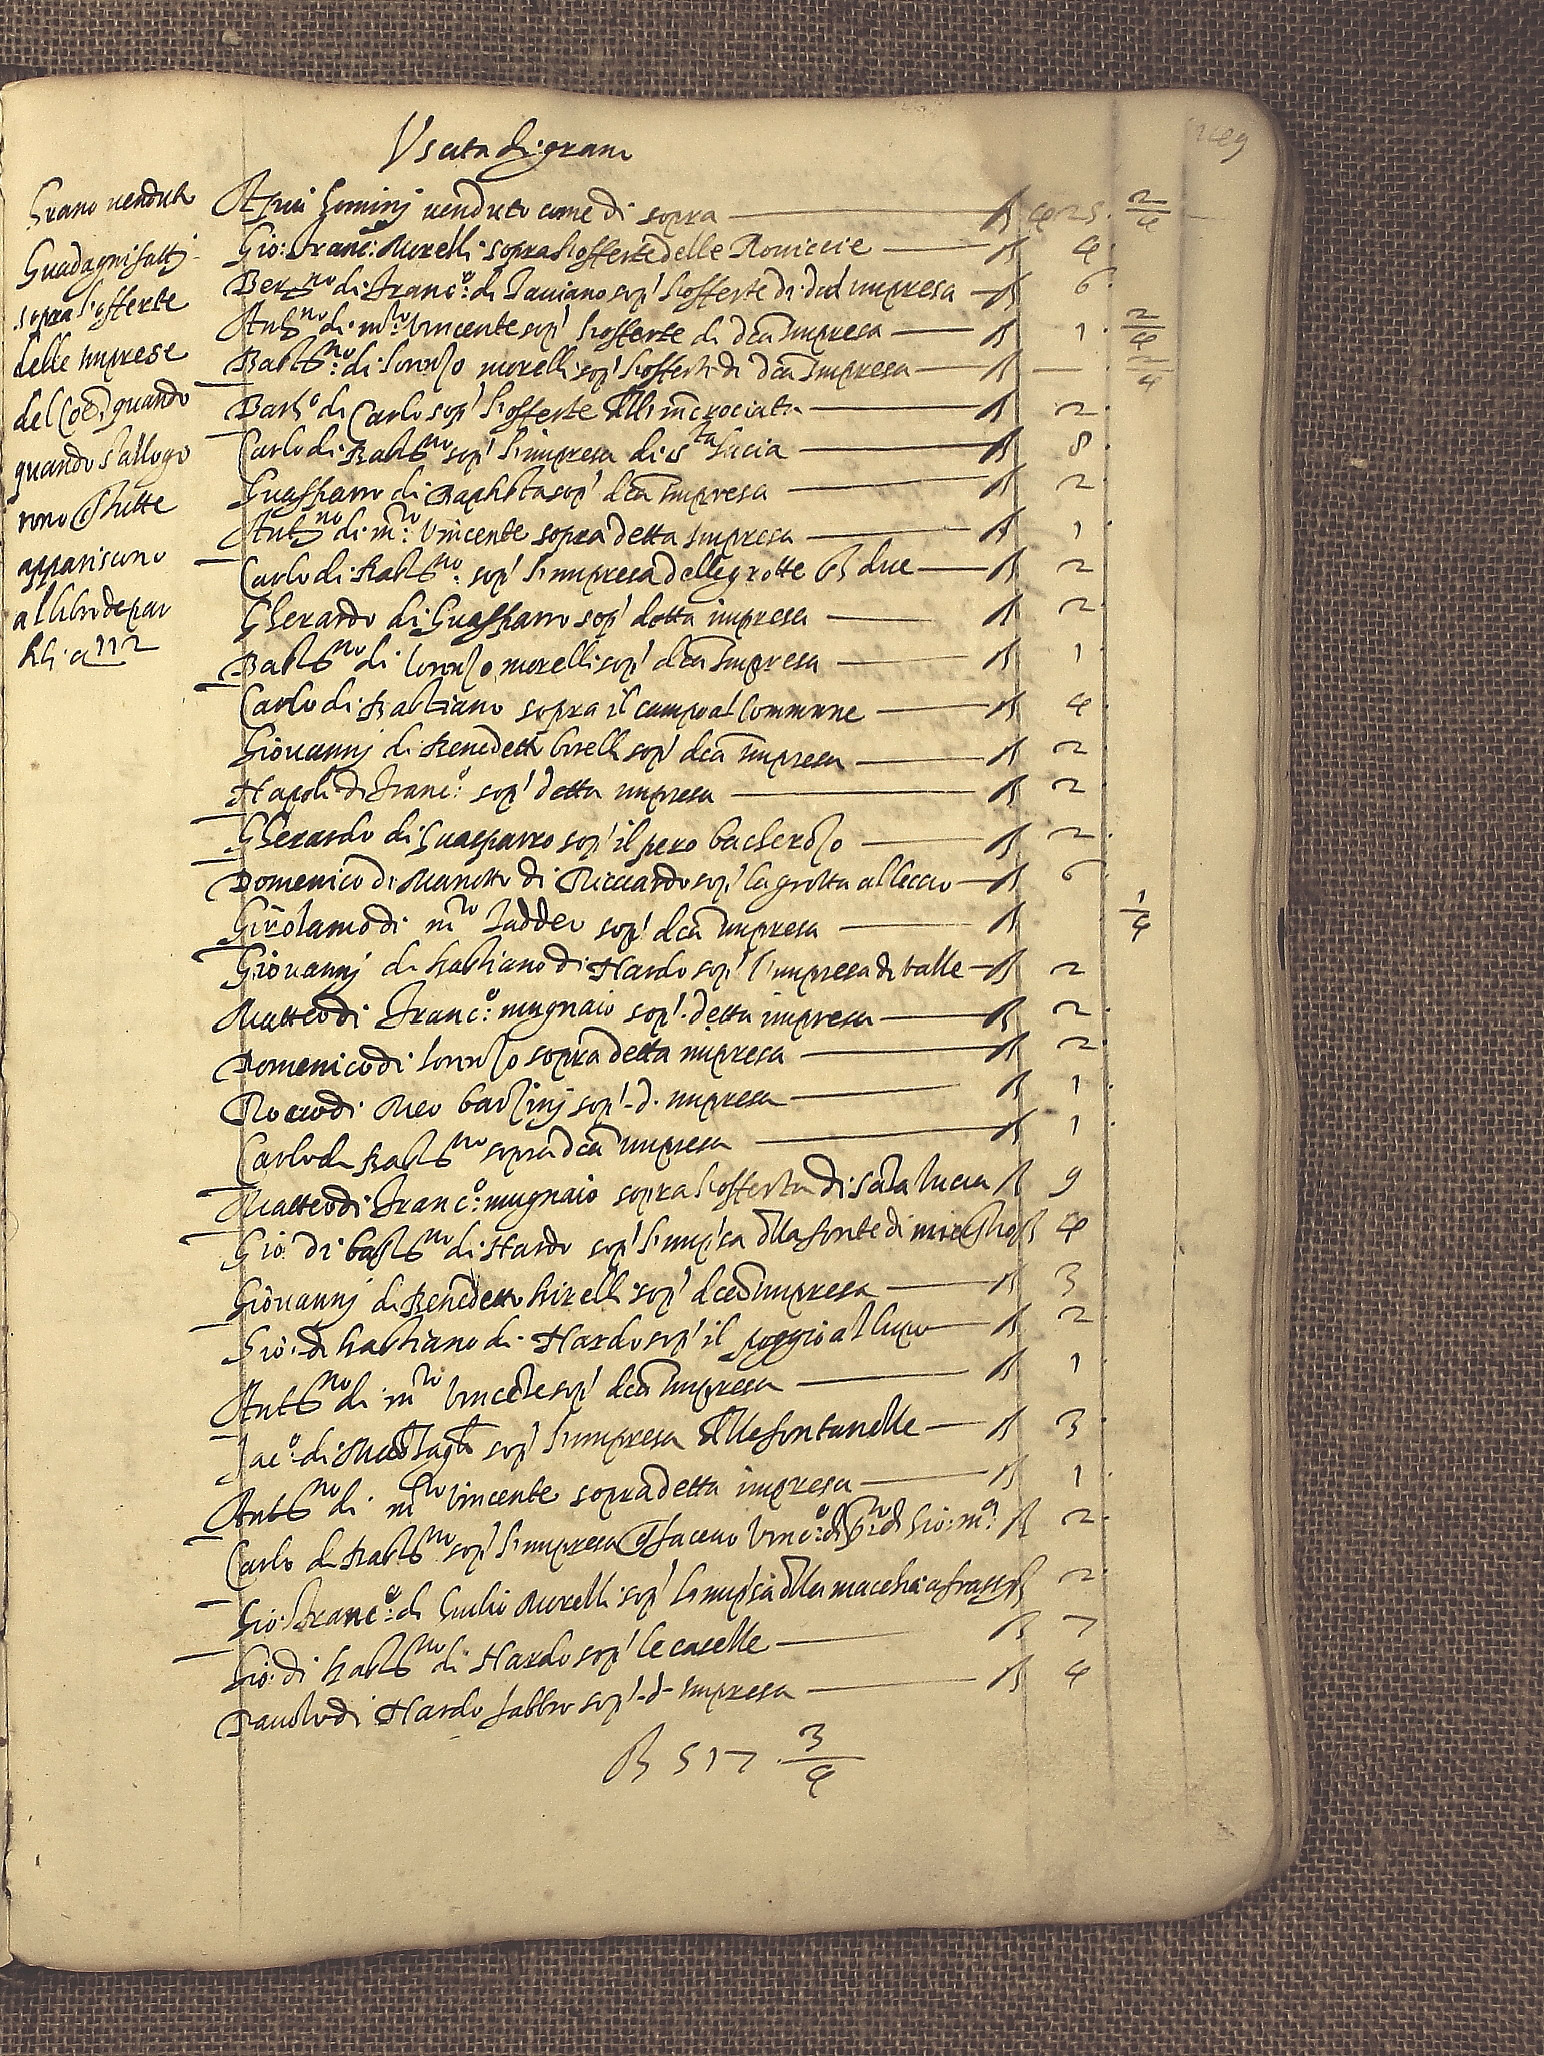 Uscita di grani
Grano venduto
Guadagni fattj
sopra l'offerte
delle imprese
del Coẽ, quando
quando s'allogo
rono che tutte
appariscono
al libro de par
titi a 112
A più hominj venduto come di sopra B 425. 2/4
Gio: Franc:º Morelli sopra l'offerte delle Roniccie B 4
Ber.no di Franc:º di Tauiano sop.ª l'offerte di d.ª impresa B 6
Ant.no di m.ro Vincente sop.ª l'offerte di dcã impresa B 1 2/4
Bast.no di Lorenzo morelli sop.ª l'offerte di dcã Impresa B — 2/4
Bart.º di Carlo sop.ª l'offerte dll' incrociata B 2
Carlo di Bast.no sop.ª l'impresa di s.ta lucia B 8
Guasparro di sop.ª dcã impresa B 2
Ant.no di m.ro Vincente sopra detta impresa B 1
Carlo di Bast.no sop.ª l'impresa delle grotte B due B 2
Gherardo di Guasparro sop.ª detta impresa B 2
Bast.no di lorenzo morelli sop.ª dcã impresa B 1
Carlo di Bastiano sopra il campo al Commune B 4
Giovannj di Benedetto birelli sop.ª dcã impresa B 2
Napoli di Franc:º sop.ª detta impresa B 2
Gherardo di Guasparro sop.ª il pero bacherozo B 2
Domenico di Mariotto di Riccardo sop.ª la grotta al leccio B 6
Girolamo di m.ro Taddeo sop.ª dcã impresa B 1/4
Giovannj di bastiano di Nardo sop.ª l'impresa di valle B 2
Matteo di Franc:º mugnaio sop.ª detta impresa B 2
Domenico di lorenzo sopra detta impresa B 2
Rocco di Meo barzinj sop.ª d. impresa B 1
Carlo di Bast.no sopra dcã impresa B 1
Matteo di Franc:º mugnaio sopra l'offerta di s.ta lucia B 9
Gio: di bast.no di Nardo sop.ª l'imp.sa dlla fonte di B 4
Giovannj di Benedetto birelli sop.ª dcã impresa B 3
Gio: di bastiano di Nardo sop.ª il poggio al lupo B 2
Ant.no di m.ro Vincẽte sop.ª dcã impresa B 1
Jac.º di sop.ª l'impresa dlle fontanelle B 3
Ant.no di m.ro Vincente sopra detta impresa B 1
Carlo di Bast.no sop.ª l'impresa che faceva Vinc:º di di Gio: m.ª B 2
Gio: Franc:º di Giulio Morelli sop.ª l'imp.sa dlla macchia a B 2
Gio: di bast.no di Nardo sop.ª le caselle B 7
Pavolo di Nardo fabbro sop.ª d. impresa B 4
B 517 3/4